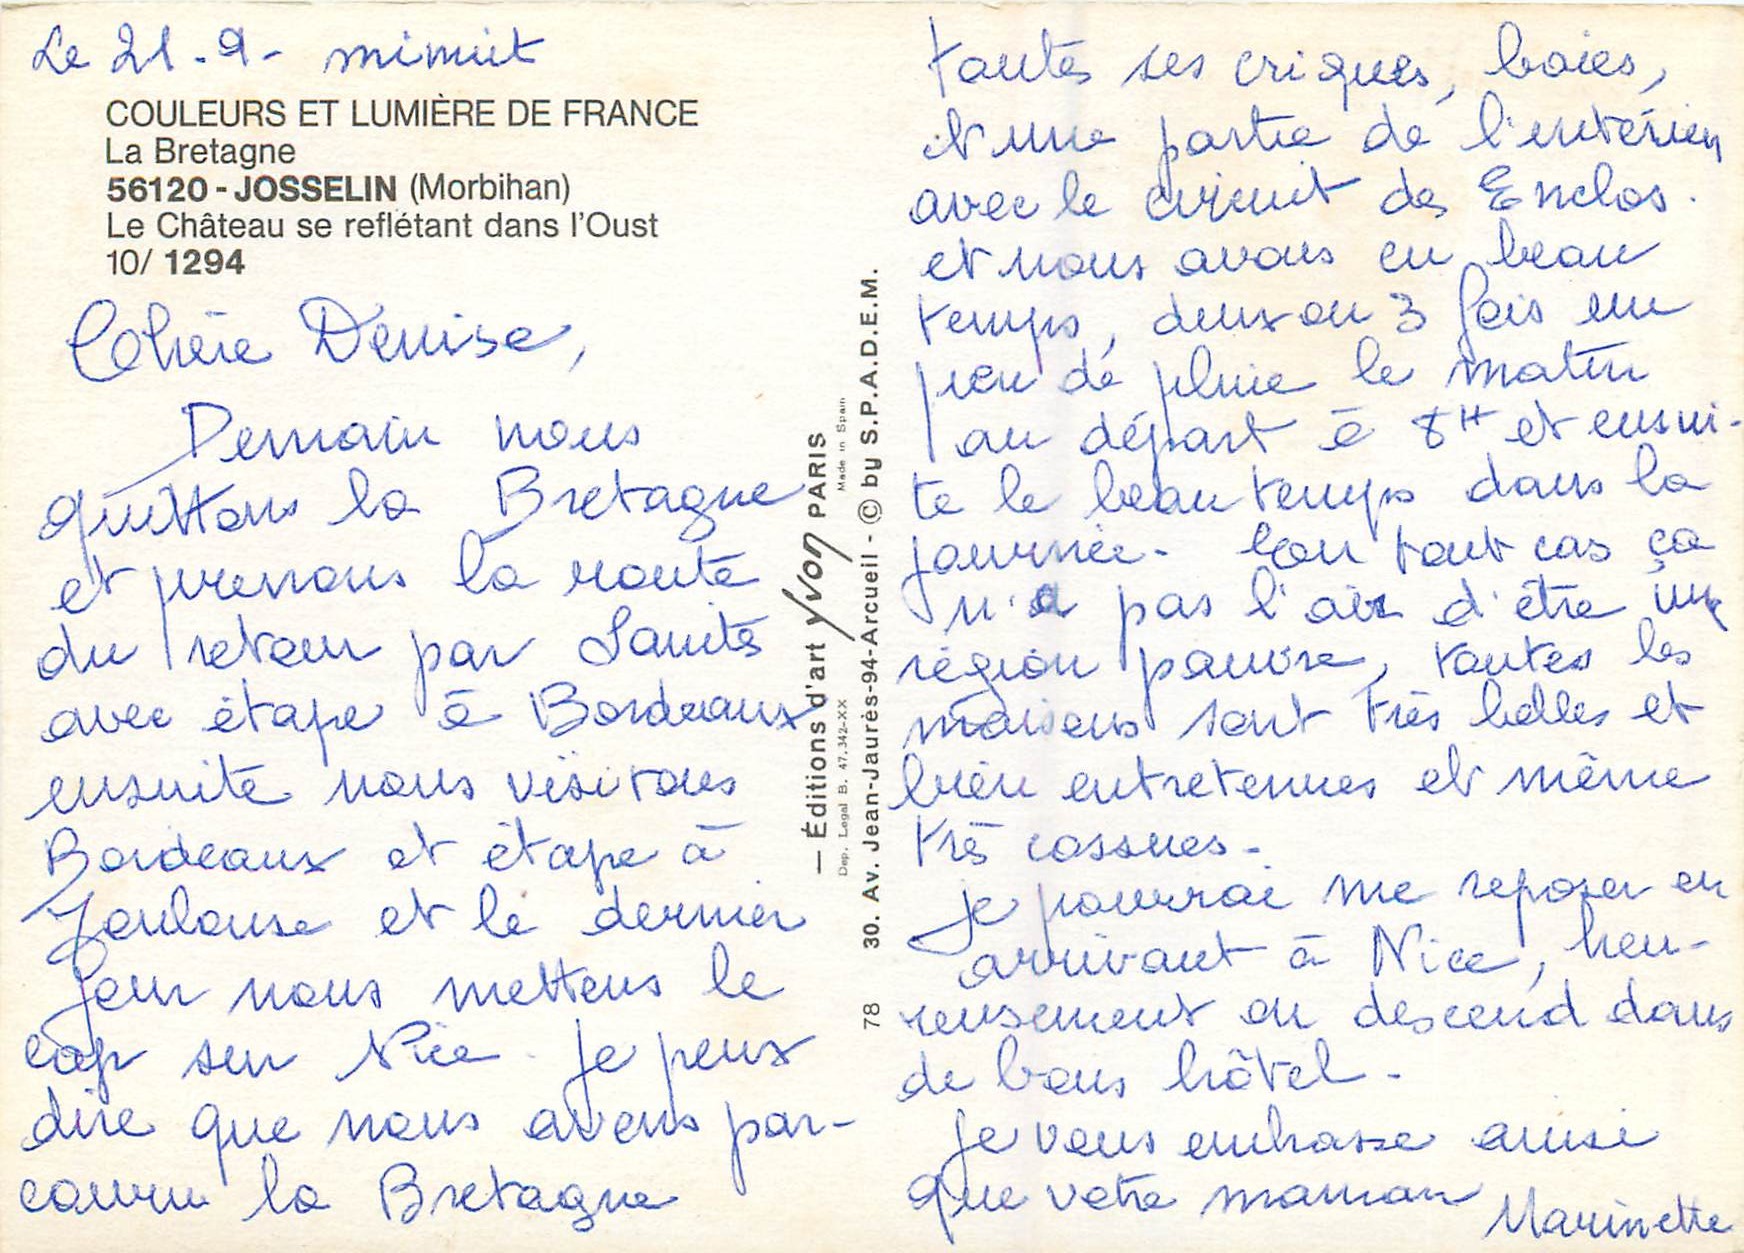 Le 21.9- minuit
COULEURS ET LUMIÈRE DE FRANCE
La Bretagne
56120 - JOSSELIN (Morbihan)
Le Château se reflétant dans l'Oust
10/ 1294
Chère Denise,
Demain nous
quittons la Bretagne
et prenons la route
du retour par Saintes
avec étape à Bordeaux
ensuite nous visitons
Bordeaux et étape à
Toulouse et le dernier
jour nous mettons le
cap sur Nice. Je peux
dire que nous avons par-
couru la Bretagne
— Éditions d'art Yvon PARIS
Dep. Legal B. 47.342-XX Made in Spain
78 30. Av. Jean-Jaurès-94-Arcueil - © by S.P.A.D.E.M.
toutes ses criques, baies,
et une partie de l'intérieur
avec le circuit des Enclos.
et nous avons eu beau
temps, deux ou 3 fois un
peu de pluie le matin
au départ à 8H et ensui-
te le beau temps dans la
journée. En tout cas ça
n'a pas l'air d'être une
région pauvre, toutes les
maisons sont très belles et
bien entretenues et même
très cossues-
Je pourrai me reposer en
arrivant à Nice, heu-
reusement on descend dans
de bons hôtel-
Je vous embrasse ainsi
que votre maman Marinette